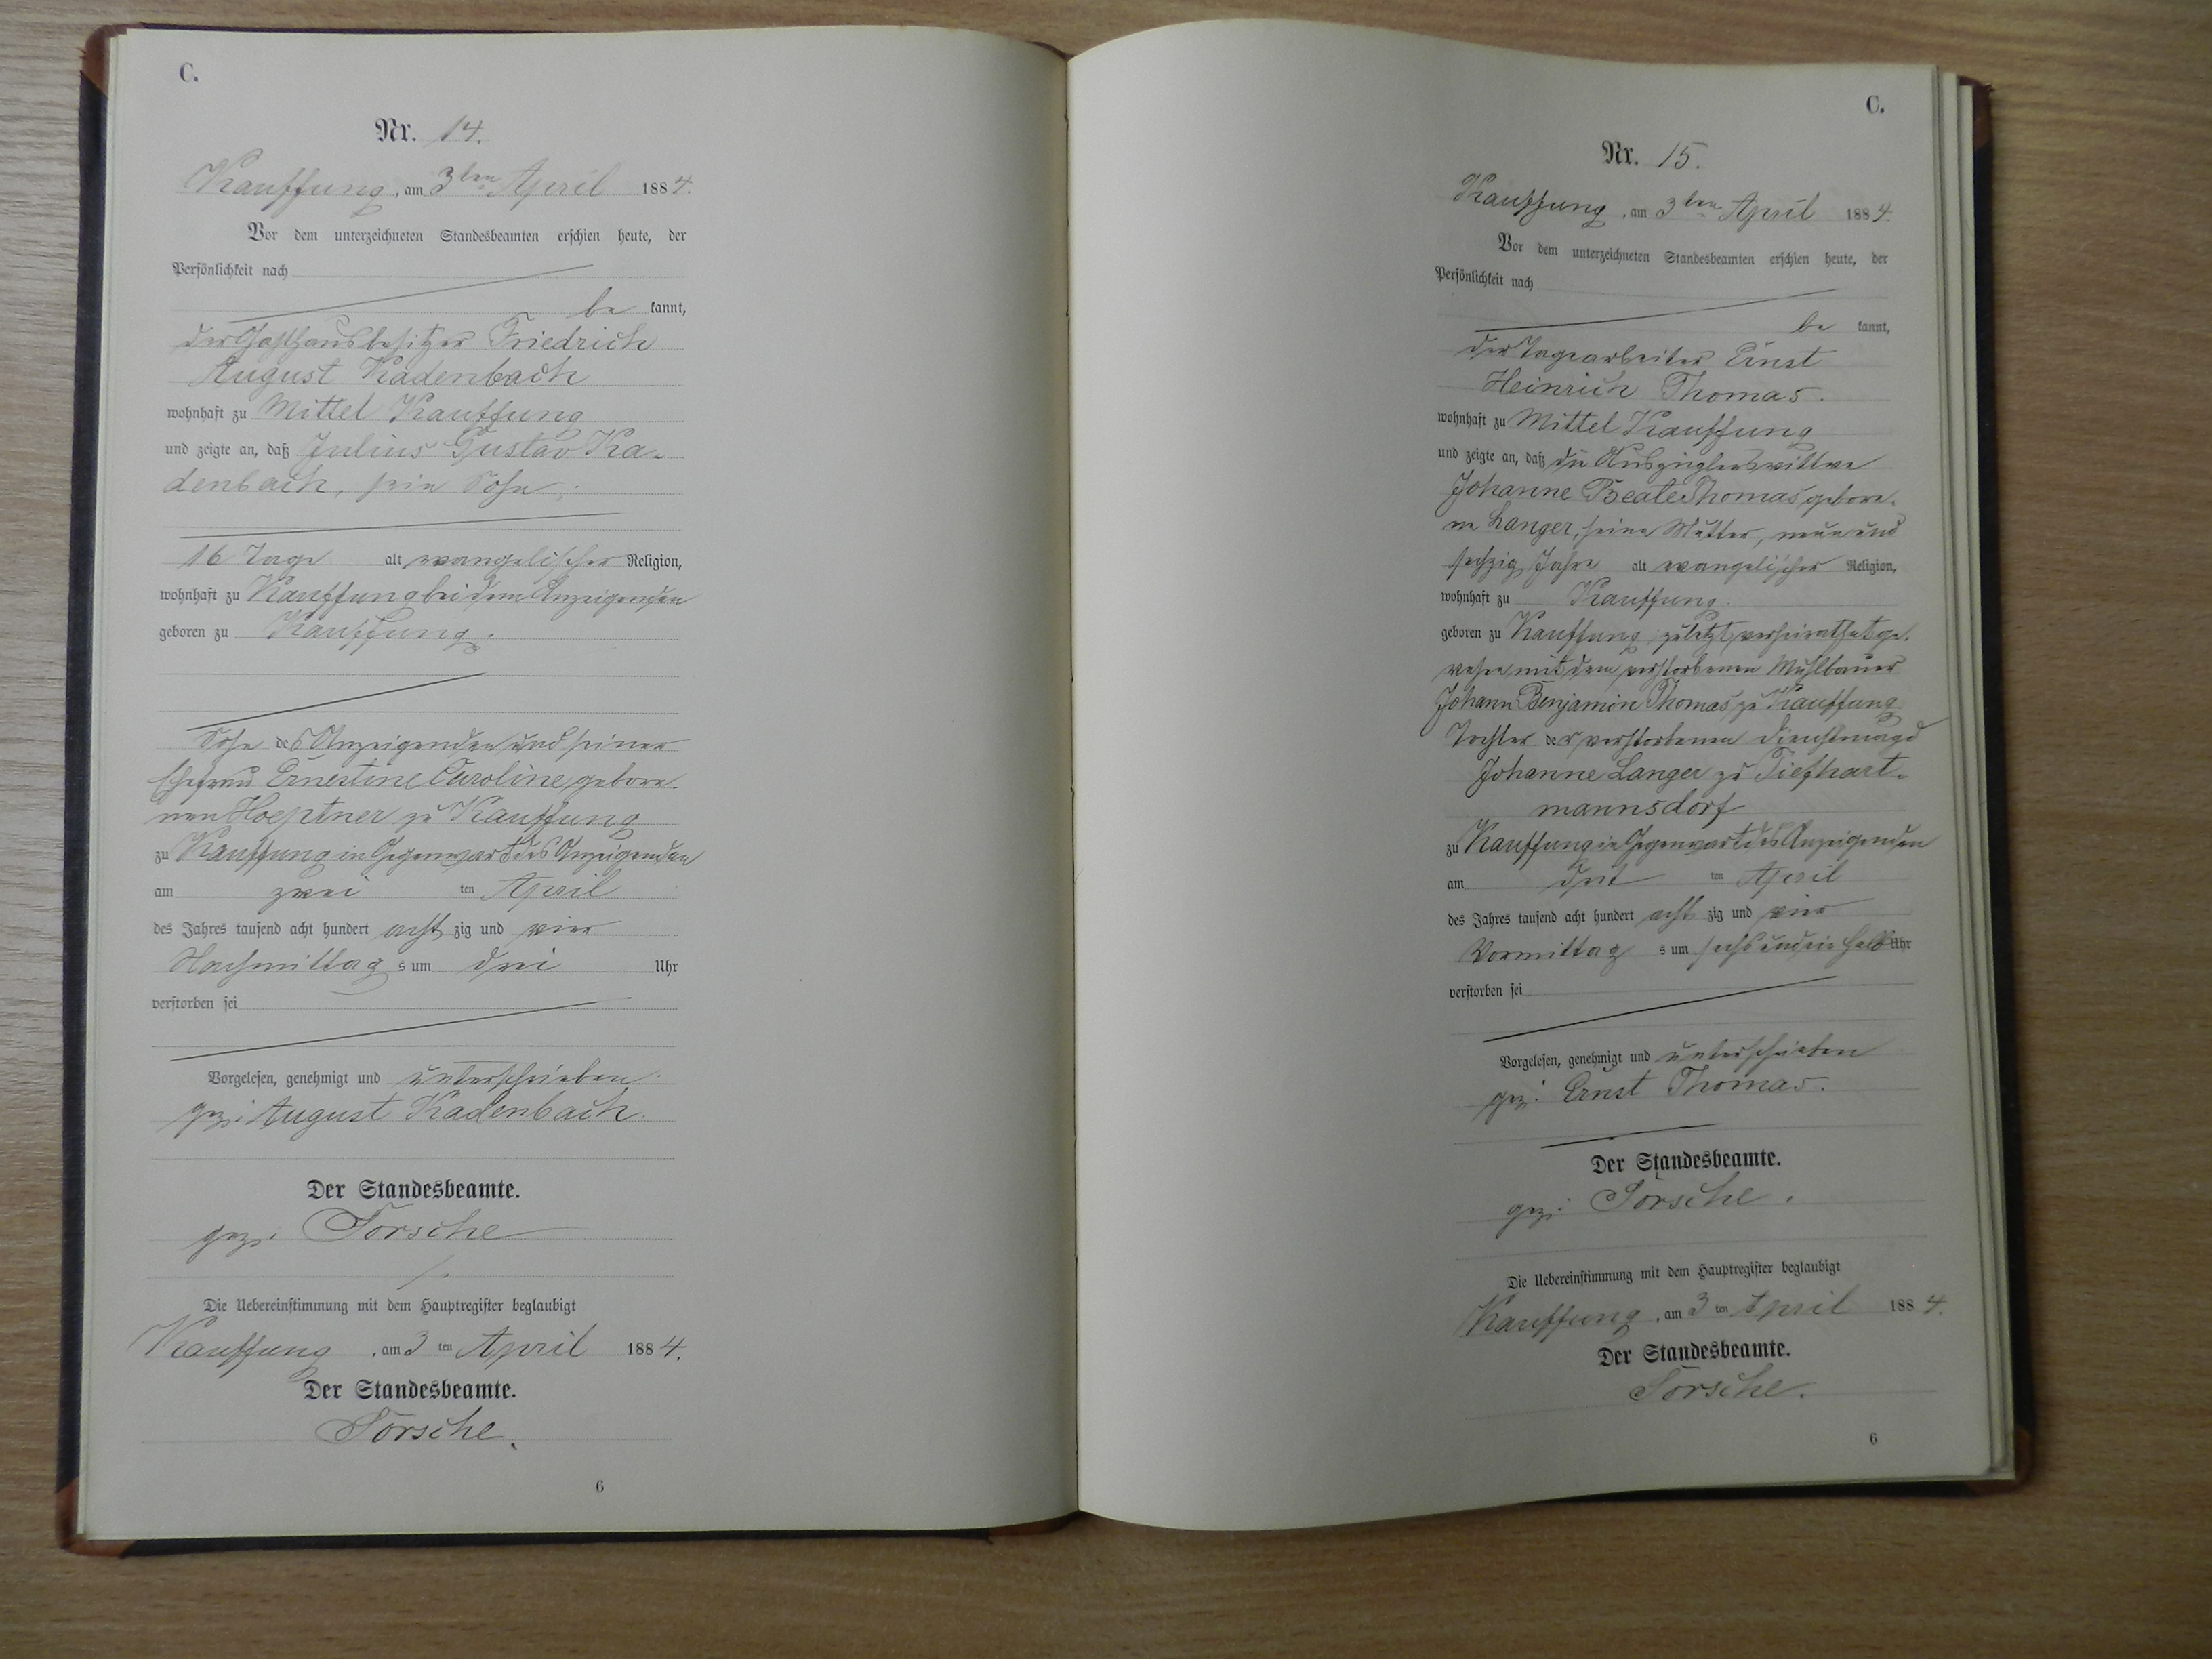 C.
Nr. 14.
Kauffung, am 3ten April 1884.
Vor dem unterzeichneten Standesbeamten erschien heute, der
Persönlichkeit nach
be kannt,
der Gasthausbesitzer Friedrich
August Kadenbach
wohnhaft zu Mittel Kauffung
und zeigte an, daß Julius Gustav Ka-
denbach, sein Sohn,
16 Tage alt evangelischer Religion,
wohnhaft zu Kauffung bei dem Anzeigenden
geboren zu Kauffung.
Sohn des Anzeigenden und seiner
Ehefrau Ernestine Caroline gebore-
nen Hoeptner zu Kauffung
zu Kauffung in Gegenwart des Anzeigenden
am zwei ten April
des Jahres tausend acht hundert acht zig und vier
Nachmittag s um drei Uhr
verstorben sei
Vorgelesen, genehmigt und unterschrieben
gez: August Kadenbach.
Der Standesbeamte.
gez: Torsche
Die Uebereinstimmung mit dem Hauptregister beglaubigt
Kauffung, am 3 ten April 1884.
Der Standesbeamte.
Torsche.
6
C.
Nr. 15.
Kauffung, am 3ten April 1884.
Vor dem unterzeichneten Standesbeamten erschien heute, der
Persönlichkeit nach
be kannt,
der Tagearbeiter Ernst
Heinrich Thomas.
wohnhaft zu Mittel Kauffung
und zeigte an, daß die Auszüglerswittwe
Johanne Beate Thomas gebore-
ne Langer, seine Mutter, neun und
sechzig Jahre alt evangelischer Religion,
wohnhaft zu Kauffung.
geboren zu Kauffung, zuletzt verheirathet ge-
wesen mit dem verstorbenen Mühlbauer
Johann Benjamin Thomas zu Kauffung
Tochter der verstorbenen Dienstmagd
Johanne Langer zu Tiefhart-
mannsdorf
zu Kauffung in Gegenwart des Anzeigenden
am drit ten April
des Jahres tausend acht hundert acht zig und vier
Vormittag s um sechs und ein halb Uhr
verstorben sei
Vorgelesen, genehmigt und unterschrieben
gez: Ernst Thomas.
Der Standesbeamte.
gez: Torsche.
Die Uebereinstimmung mit dem Hauptregister beglaubigt
Kauffung, am 3 ten April 1884.
Der Standesbeamte.
Torsche.
6